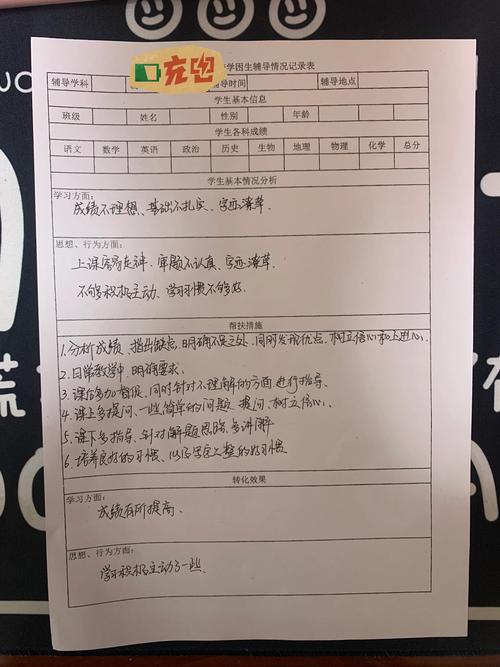 充电
学困生辅导情况记录表
辅导学科 辅导时间 辅导地点
学生基本信息
班级 姓名 性别 年龄
学生各科成绩
语文 数学 英语 政治 历史 生物 地理 物理 化学 总分
学生基本情况分析
学习方面:
成绩不理想、基础不扎实、字迹潦草.
思想、行为方面:
上课容易走神、审题不认真、字迹潦草.
不够积极主动、学习习惯不够好.
帮扶措施
1.分析成绩、指出缺点,明确不足之处,同时发现优点,树立信心和上进心.
2.日常教学中,明确要求.
3.课后多加督促,同时针对不理解的方面进行指导.
4.课上多提问、一些简单的问题提问、树立信心.
5.课下多指导、针对解题思路多讲解
6.培养良好的习惯、以及字迹工整的好习惯
转化效果
学习方面:
成绩有所提高.
思想、行为方面:
学习积极主动了一些.